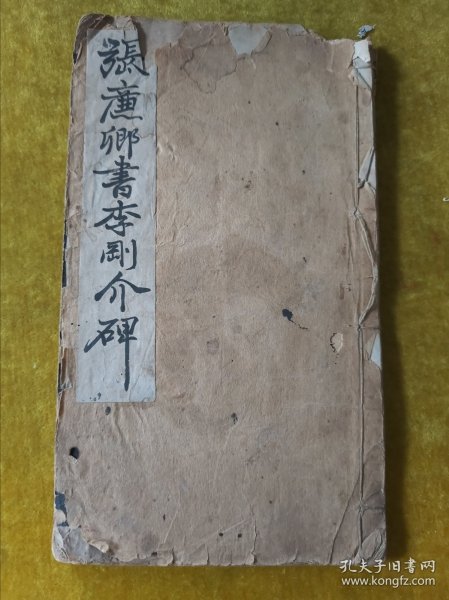 張廉卿書李剛介碑
孔夫子旧书网
www.kongfz.com